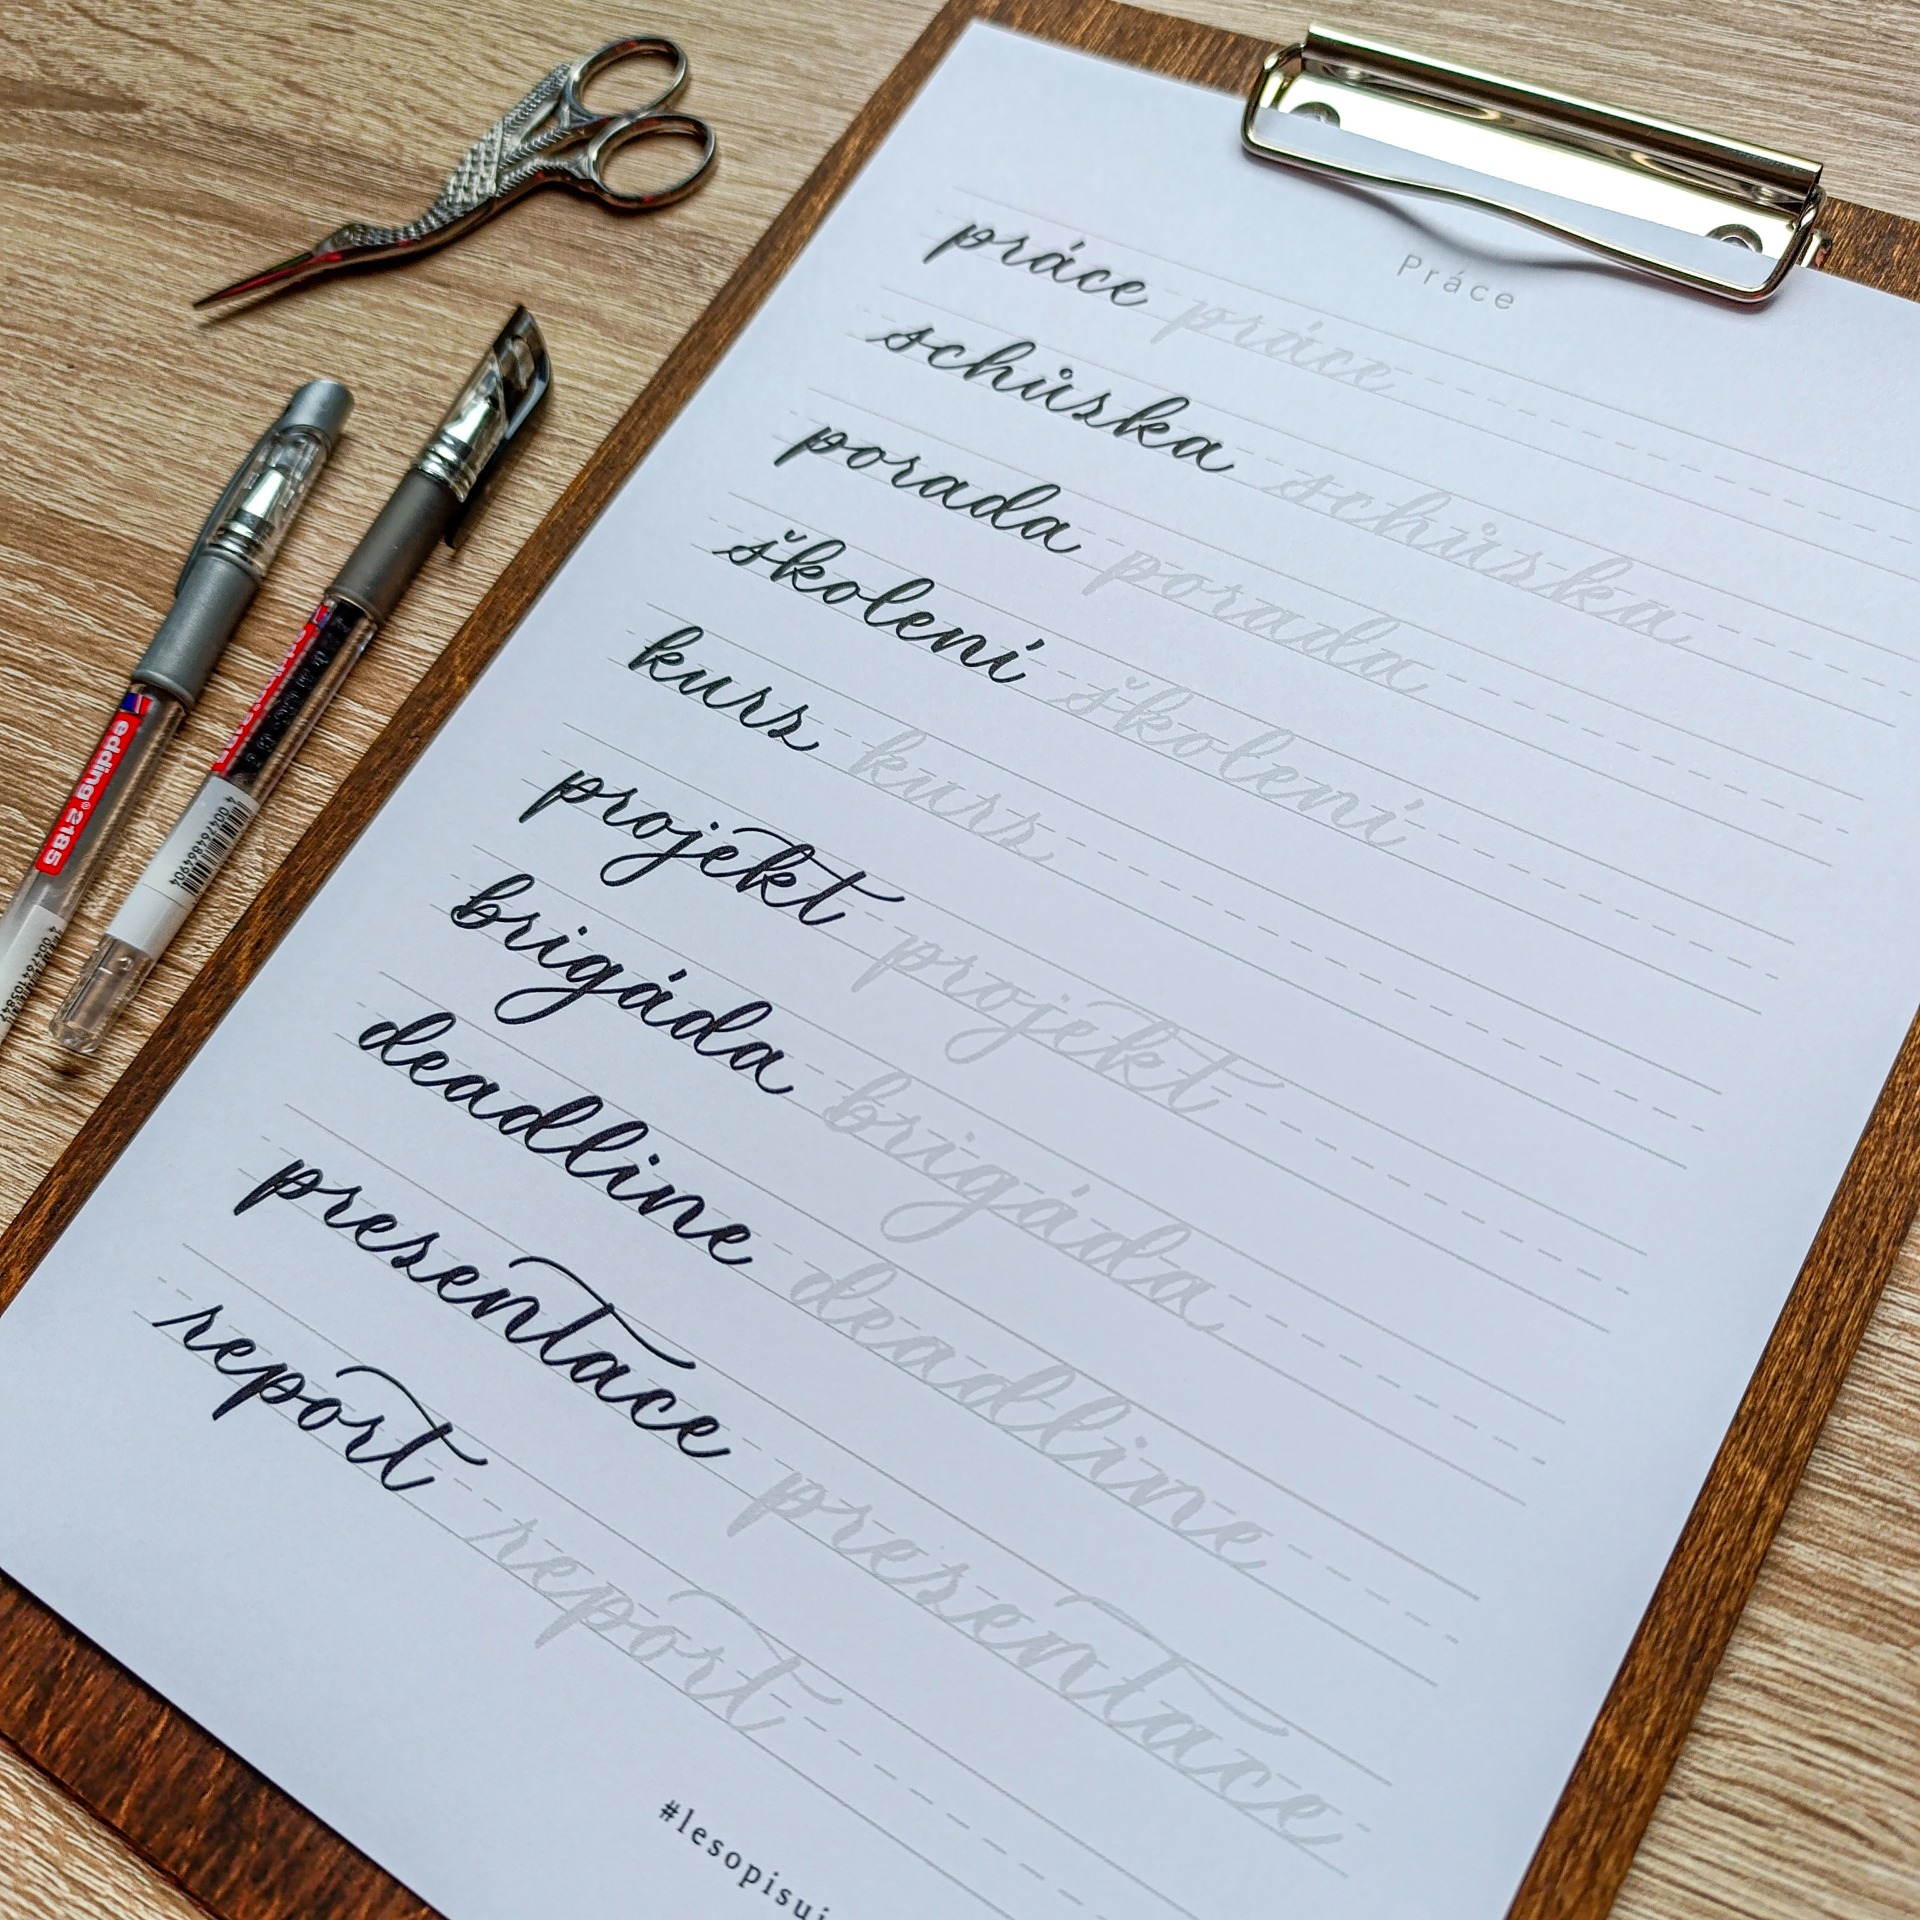 Práce
práce práce
schůzka schůzka
porada porada
školení školení
kurz kurz
projekt projekt
brigáda brigáda
deadline deadline
presentace presentace
report report
edding® 2185
4 004764864904